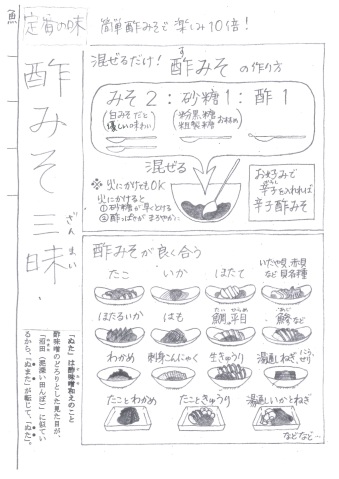 魚
定番の味
簡単酢みそで楽しみ10倍！
酢みそ三昧
ざんまい
混ぜるだけ！酢みその作り方
す
みそ2：砂糖1：酢1
（白みそだと優しい味わい）
（粉黒糖 粗製糖 おすすめ）
混ぜる
※火にかけてもOK
火にかけると
①砂糖が早くとける
②酢っぱみがまろやかに
お好みで
辛子を入れれば
辛子酢みそ
酢みそが良く合う
たこ
いか
ほたて
いたや貝、赤貝
など貝各種
ほたるいか
はも
鯛、平目
たい ひらめ
鯵など
あじ
わかめ
刺身こんにゃく
生きゅうり
湯通しねぎ、にら、せり
たことわかめ
たこときゅうり
湯通しいかとねぎ
などなど…
「ぬた」は酢味噌和えのこと
酢味噌のどろりとした見た目が、
「沼田（泥深い田んぼ）」に似てい
るから、「ぬまた」が転じて、「ぬた」。